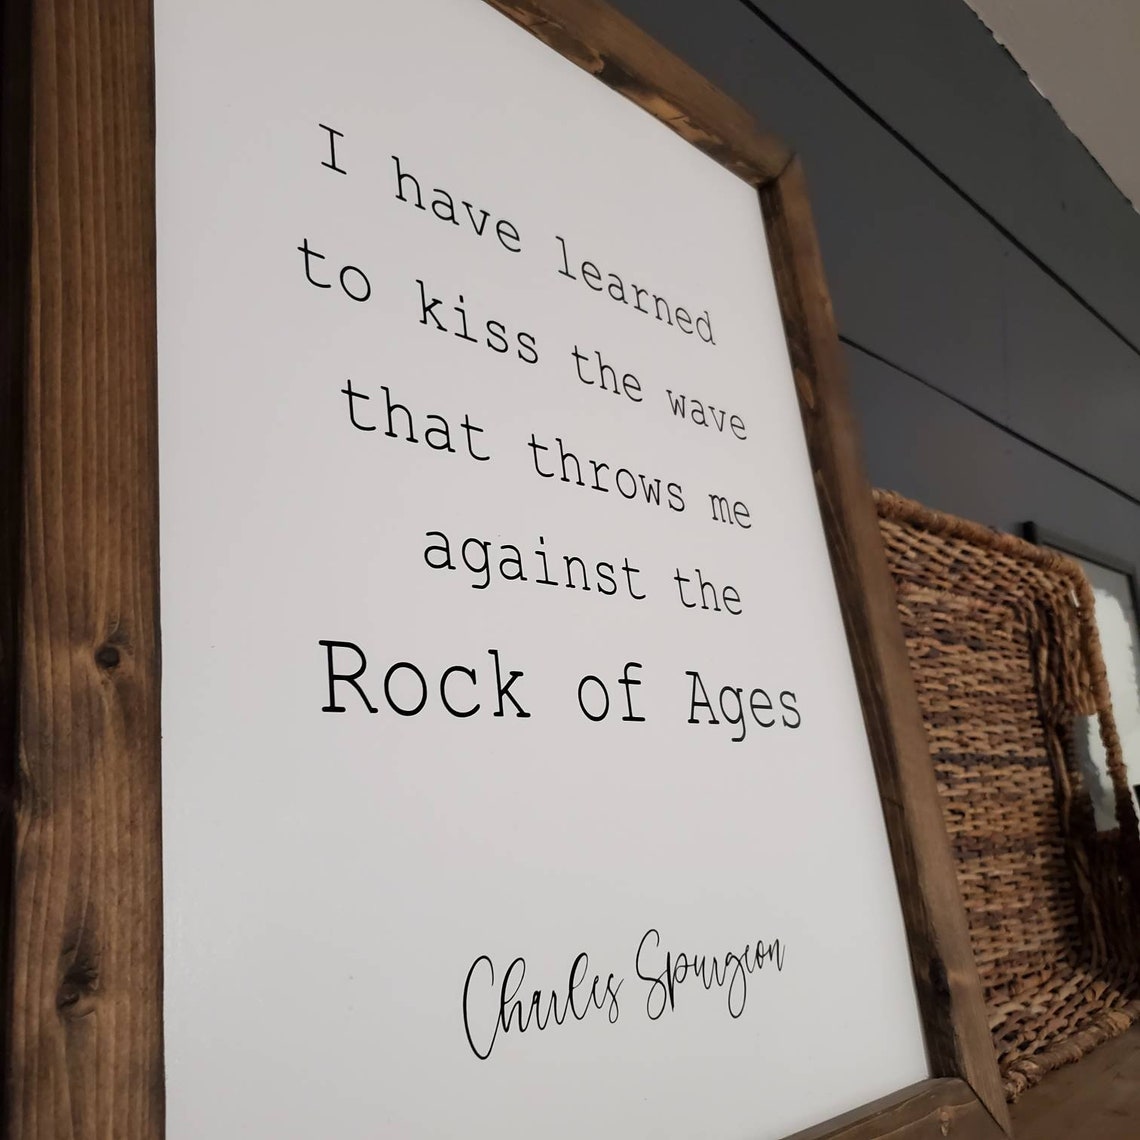 I have learned
to kiss the wave
that throws me
against the
Rock of Ages
Charles Spurgeon